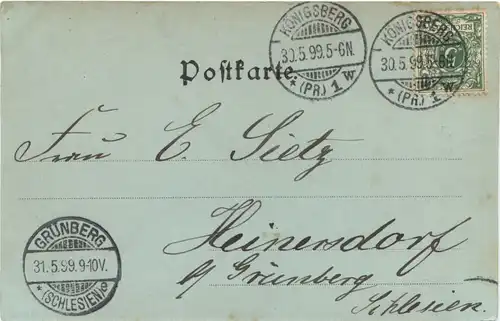 KÖNIGSBERG
30.5.99.5-6N.
* (PR.) 1 w
KÖNIGSBERG
30.5.99.5-6N.
* (PR.) 1 w
REICHSPOST
5
Postkarte.
Frau E. Sietz
Heinersdorf
b/ Grünberg
Schlesien.
GRÜNBERG
31.5.99.9-10V.
* (SCHLESIEN) e